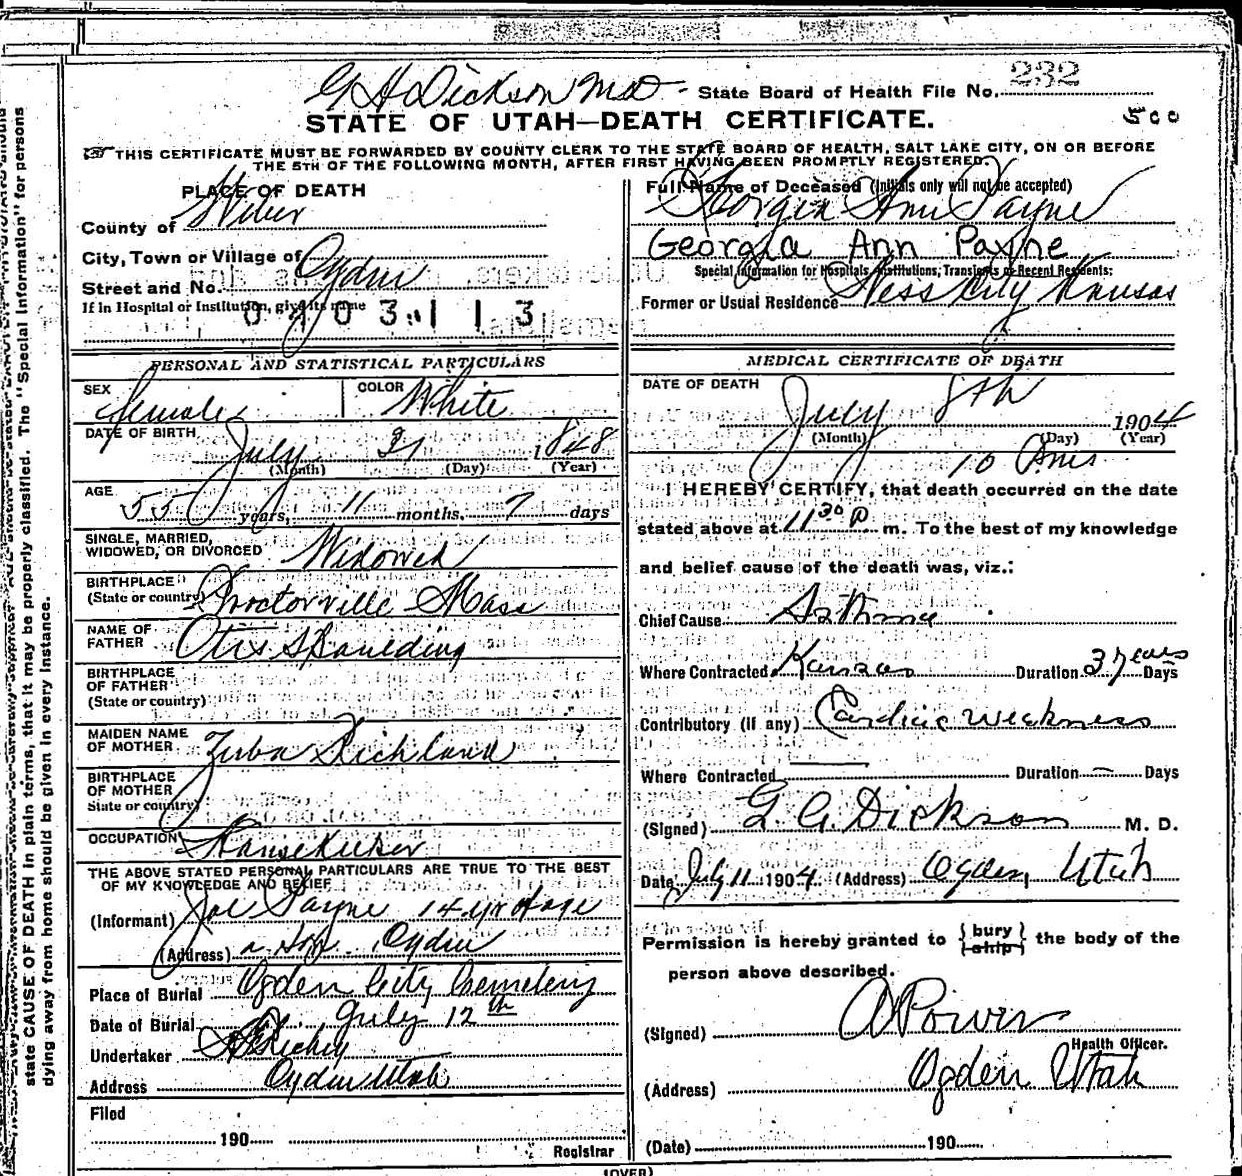 G H Dickson MD - State Board of Health File No. 232
500
STATE OF UTAH—DEATH CERTIFICATE.
THIS CERTIFICATE MUST BE FORWARDED BY COUNTY CLERK TO THE STATE BOARD OF HEALTH, SALT LAKE CITY, ON OR BEFORE
THE 5TH OF THE FOLLOWING MONTH, AFTER FIRST HAVING BEEN PROMPTLY REGISTERED.
state CAUSE OF DEATH in plain terms, that it may be properly classified. The "Special Information" for persons
dying away from home should be given in every instance.
PLACE OF DEATH
County of Weber
City, Town or Village of Ogden
Street and No.
If in Hospital or Institution, give its name
PERSONAL AND STATISTICAL PARTICULARS
SEX female COLOR White
DATE OF BIRTH July 31 1848
(Month) (Day) (Year)
AGE 55 years, 11 months, 7 days
SINGLE, MARRIED,
WIDOWED, OR DIVORCED Widowed
BIRTHPLACE
(State or country) Proctorville Mass
NAME OF
FATHER Otis Spaulding
BIRTHPLACE
OF FATHER
(State or country)
MAIDEN NAME
OF MOTHER Zuba Richland
BIRTHPLACE
OF MOTHER
State or country)
OCCUPATION Housekeeper
THE ABOVE STATED PERSONAL PARTICULARS ARE TRUE TO THE BEST
OF MY KNOWLEDGE AND BELIEF
(Informant) Joe Payne 14 yr of age
(Address) a son. Ogden
Place of Burial Ogden City Cemetery
Date of Burial July 12th
Undertaker
Address Ogden Utah
Filed
190
Registrar
Full Name of Deceased (Initials only will not be accepted)
Georgia Ann Payne
Georgia Ann Payne
Special Information for Hospitals, Institutions, Transients or Recent Residents:
Former or Usual Residence Ness City Kansas
MEDICAL CERTIFICATE OF DEATH
DATE OF DEATH July 8th 1904
(Month) (Day) (Year)
10
I HEREBY CERTIFY, that death occurred on the date
stated above at 11 30 P m. To the best of my knowledge
and belief cause of the death was, viz.:
Chief Cause Asthma
Where Contracted Kansas Duration 3 years Days
Contributory (if any) Cardiac weakness
Where Contracted Duration — Days
(Signed) G. G. Dickson M. D.
Date July 11 1904. (Address) Ogden, Utah
Permission is hereby granted to {bury ship} the body of the
person above described.
(Signed) A Power
Health Officer.
(Address) Ogden Utah
(Date) 190
(OVER)